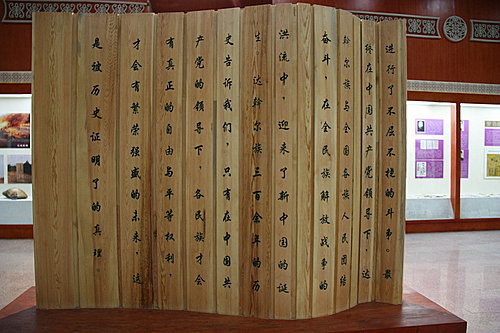 进行了不屈不挠的斗争。最
终在中国共产党领导下，达
斡尔族与全国各族人民团结
奋斗，在全民族解放战争的
洪流中，迎来了新中国的诞
生。达斡尔族三百余年的历
史告诉我们，只有在中国共
产党的领导下，各民族才会
有真正的自由与平等权利，
才会有繁荣强盛的未来，这
是被历史证明了的真理。